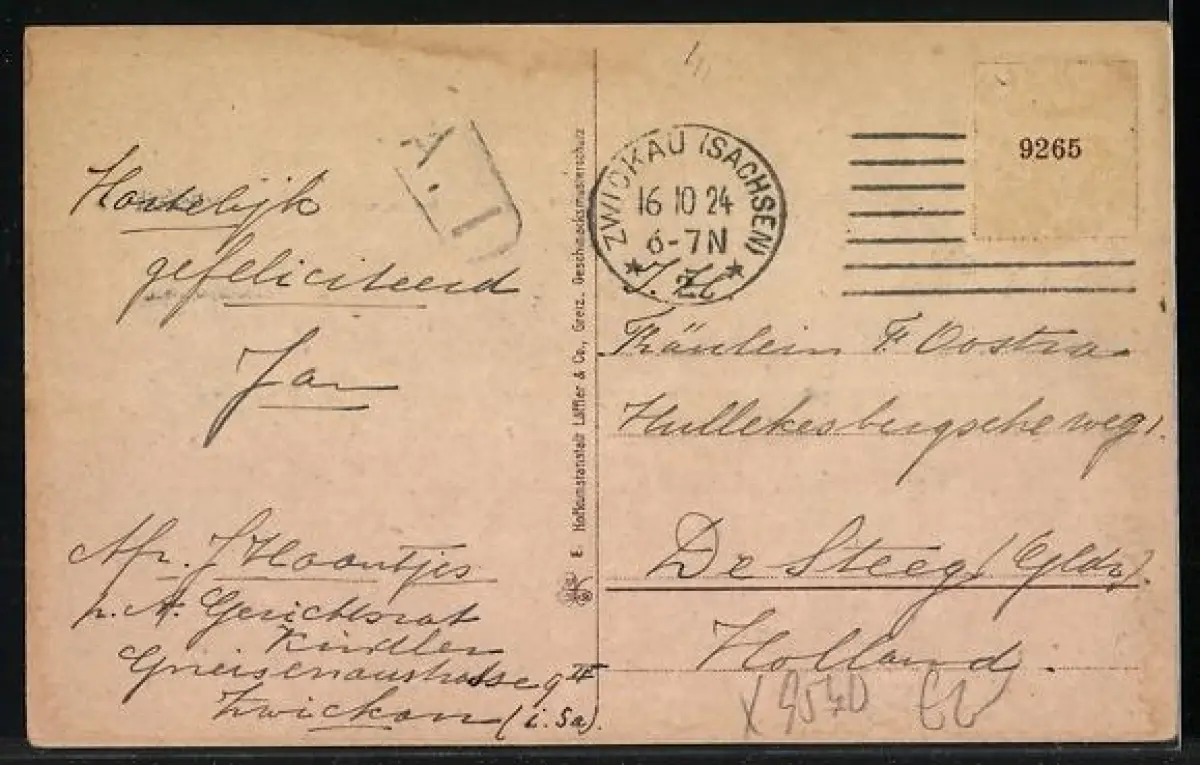 Hartelijk
gefeliciteerd
Jan
Afz. J Haantjes
p. A. Gerichtsrat
Kindler
Gneisenaustrasse 9 II
Zwickau (i. Sa).
E. Hofkunstanstalt Löffler & Co., Greiz. Geschmacksmusterschutz
ZWICKAU (SACHSEN)
16 10 24
6-7 N
9265
Fräulein F Oostra
Hullekesbergscheweg
De Steeg (Gldr).
Holland.